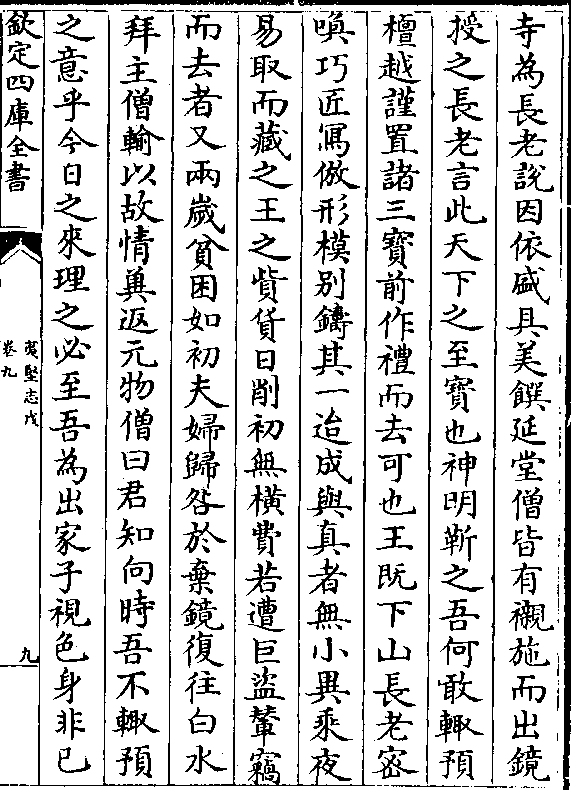 寺為長老說因依盛具美饌延堂僧皆有襯施而出鏡
授之長老言此天下之至寶也神明靳之吾何敢輙預
檀越謹置諸三寶前作禮而去可也王既下山長老密
喚巧匠冩倣形模别鑄其一迨成與真者無小異乘夜
易取而藏之王之貲貨日削初無横費若遭巨盗輦竊
而去者又兩歲貧困如初夫婦歸咎於棄鏡復往白水
拜主僧輸以故情兾返元物僧曰君知向時吾不輙預
之意乎今日之來理之必至吾為出家子視色身非已
欽定四庫全書
夷堅志戊
卷九
九